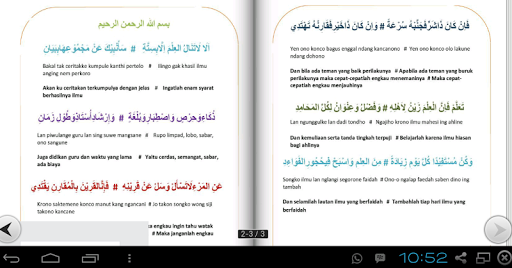 بسم الله الرحمن الرحيم
ألا لاتنال العلم إلابستة # سأنبيك عن مجموعهاببيان
Bakal tak ceritakke kumpule kanthi pertelo # Ilingo gak khasil ilmu
anging nem perkoro
Akan ku ceritakan terkumpulya dengan jelas # Ingatlah enem syarat
berhasilnya ilmu
ذكاءوحرص واصطباروبلغة # وإرشادأستاذوطول زمان
Lan piwulange guru lan sing suwe mangsane # Rupo limpad, lobo, sabar,
ono sangune
Juga didikan guru dan waktu yang lama # Yaitu cerdas, semangat, sabar,
ada biaya
عن المرءلاتسأل وسل عن قرينه # فإن القرين بالمقارن يقتدي
Krono saktemene konco manut kang ngancani # Jo takon songko wong siji
takono kancane
engkau ingin tahu watak
# Maka janganlah engkau
فإن كان ذاشرفجنبه سرعة # وإن كان ذاخيرفقارنه تهتدي
Yen ono konco bagus enggal ndang kancanono # Yen ono konco olo lakune
ndang dohono
Dan bila ada teman yang baik perilakunya # Apabila ada teman yang buruk
perilakunya maka cepat-cepatlah engkau menemaninya # Maka cepat-
cepatlah engkau menjauhinya
تعلم فإن العلم زين لاهله # وفضل وعنوان لكل المحامد
Lan ngunggulke lan dadi tondho # Ngajiho krono ilmu mahesi ing ahlini
Dan kemuliaan serta tanda tingkah terpuji # Belajarlah karena ilmu hiasan
bagi ahlinya
وكن مستفيدا كل يوم زيادة # من العلم واسبح في بحورالفوائد
Songko ilmu lan nglangi segorone faidah # Ono-o ngalap faedah saben dino ing
tambah
Dan selamilah lautan ilmu yang berfaidah # Tambahlah tiap hari ilmu yang
berfaidah
2-3 / 3
10:52